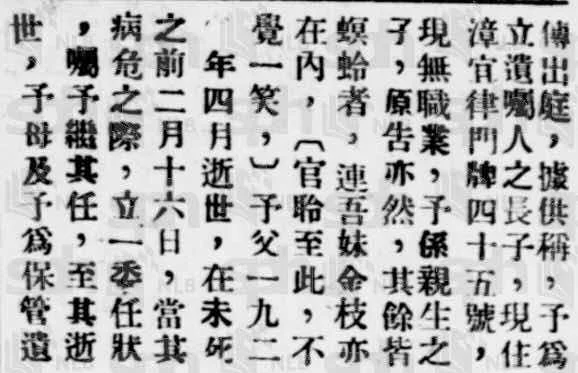 傳出庭，據供稱，予爲
立遺囑人之長子，現住
漳宜律門牌四十五號，
現無職業，予係親生之
子，原告亦然，其餘皆
螟蛉者，連吾妹金枝亦
在內，（官聆至此，不
覺一笑，）予父一九二
年四月逝世，在未死
之前二月十六日，當其
病危之際，立一委任狀
，囑予繼其任，至其逝
世，予母及予爲保管遺